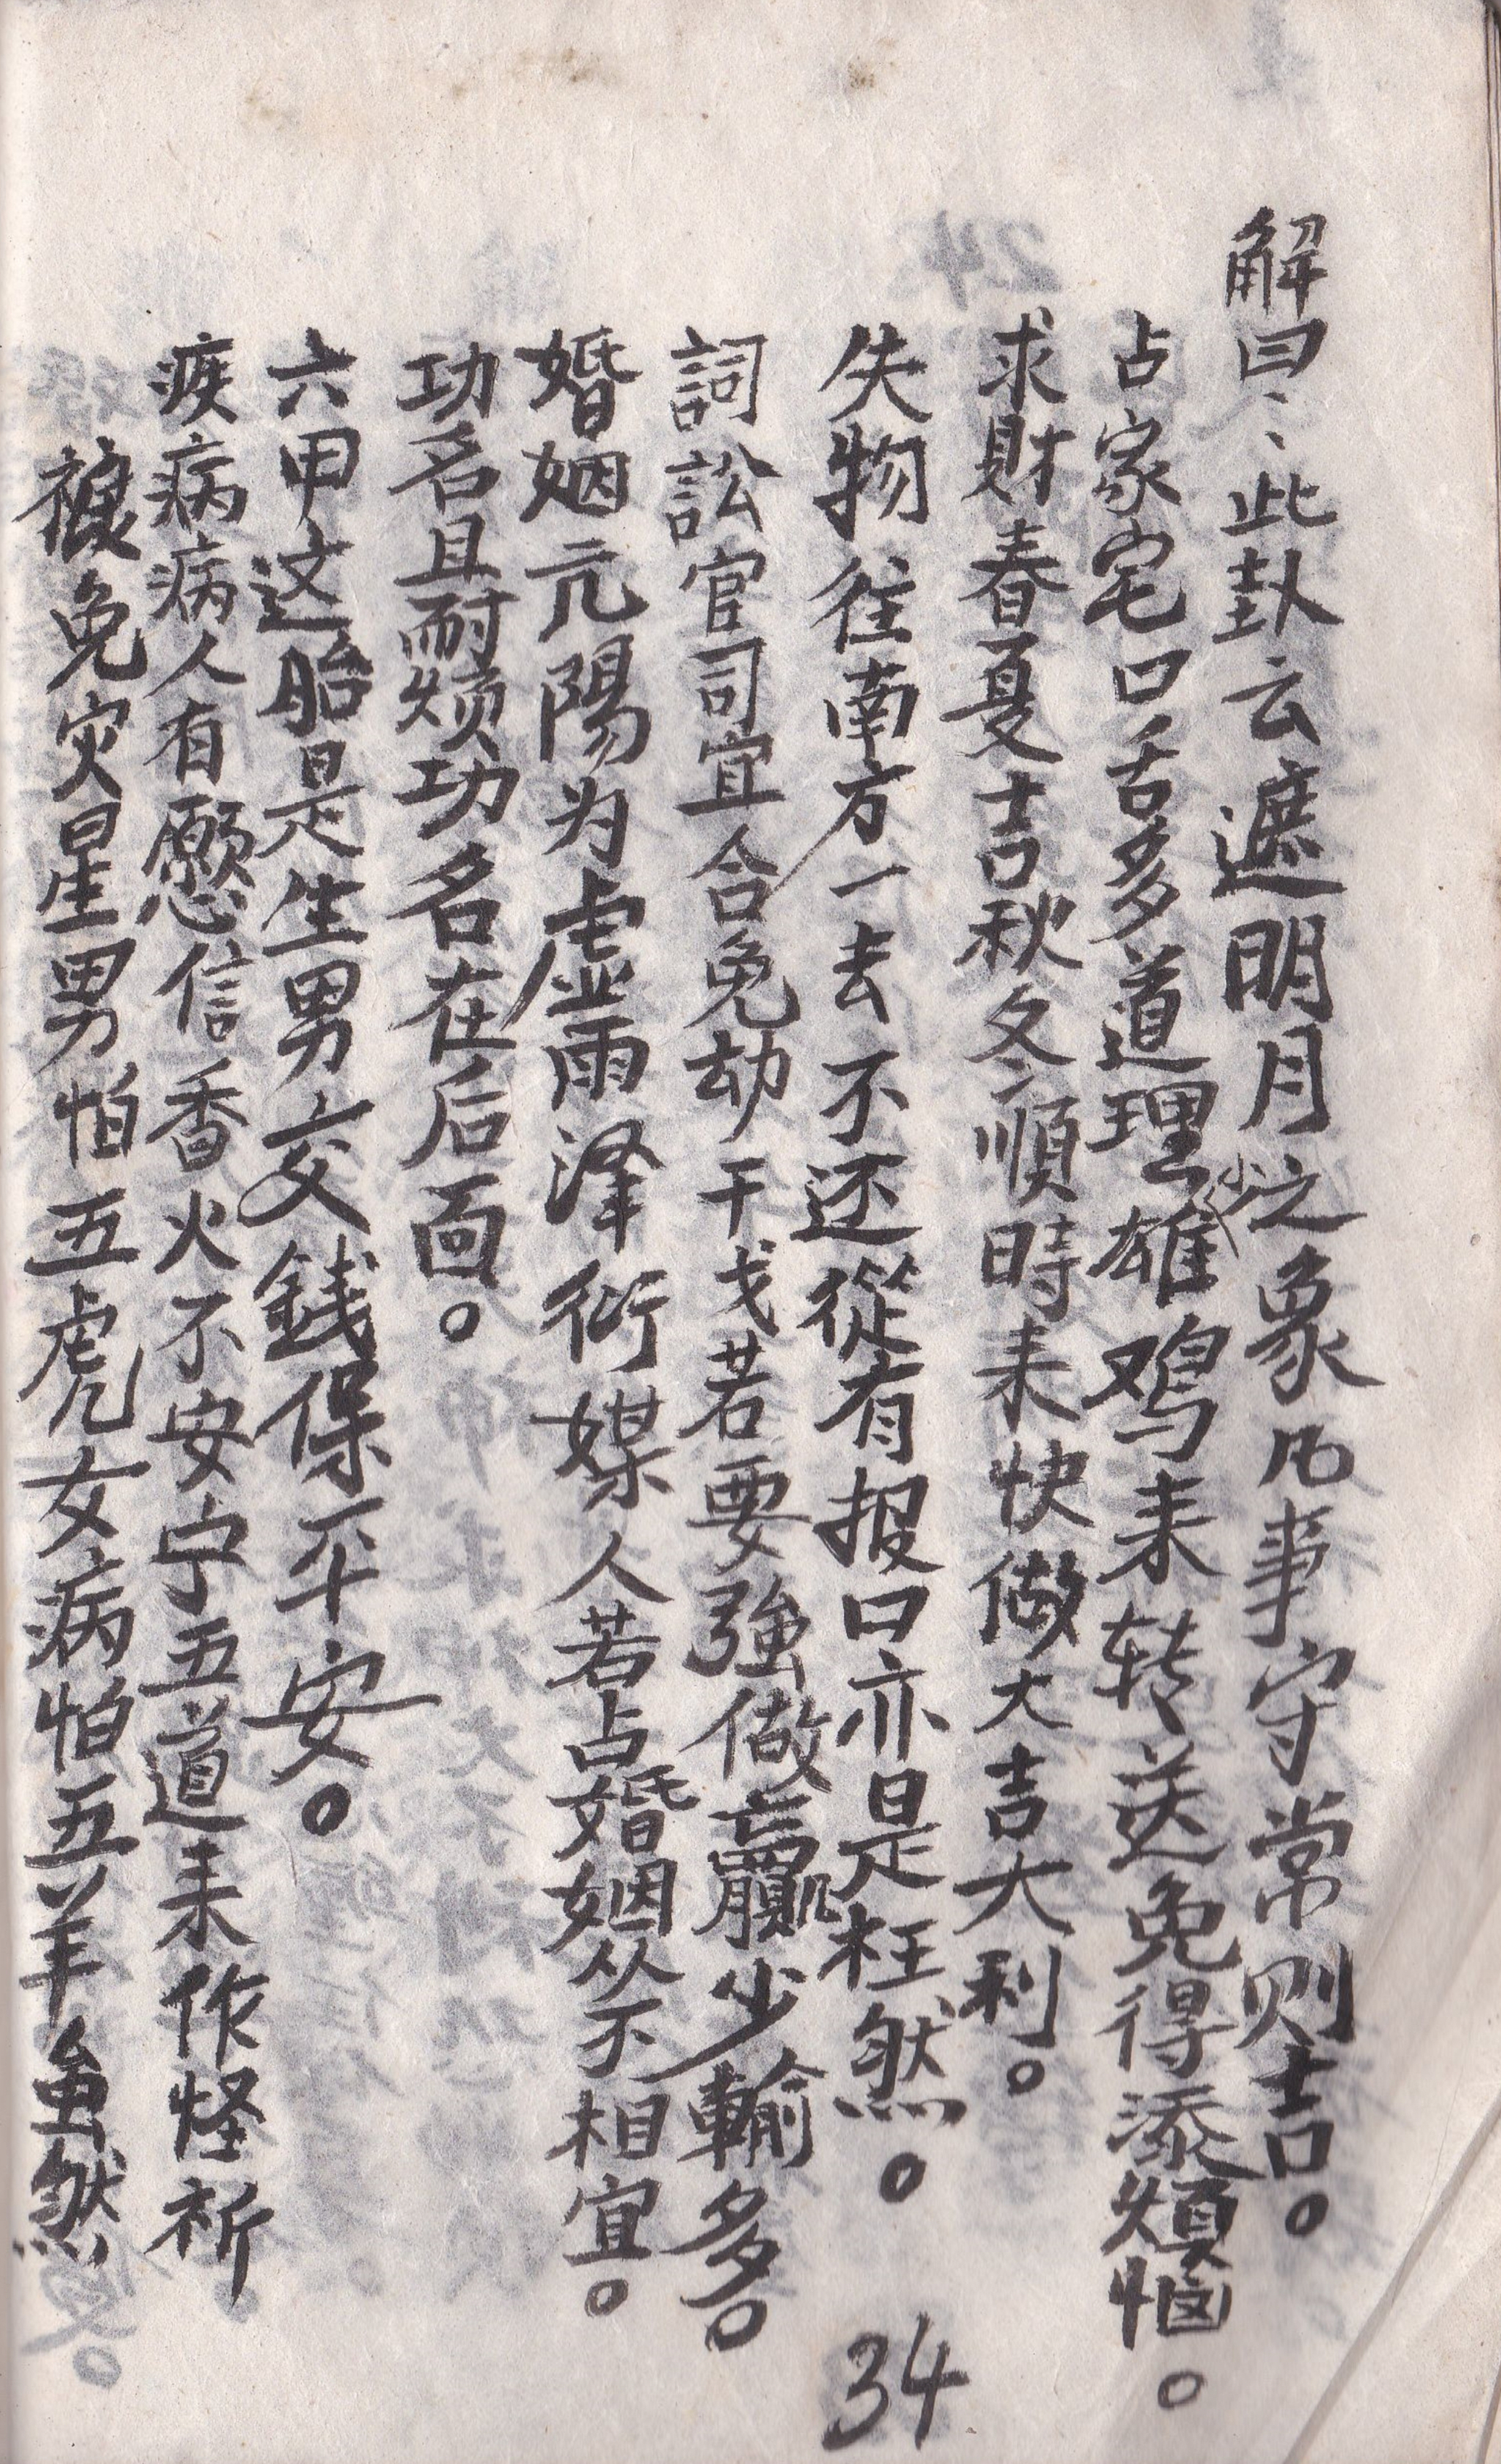 解曰、、此卦云遮明月之象凡事守常则吉。
占家宅口舌多道理少雄鸡来转送免得添煩恼。
求財春夏吉秋冬順時来快做大吉大利。
失物往南方一去不还從有报口亦是枉然。
詞訟官司宜合免劫干戈若要強做贏少輸多。
婚姻亢陽为虚雨泽衍媒人若占婚姻从不相宜。
功名且耐烦功名在后面。
六甲这胎是生男交銭保平安。
疾病病人有愿信香火不安宁五道来作怪祈
禳免灾星男怕五虎女病怕五羊虽然
34